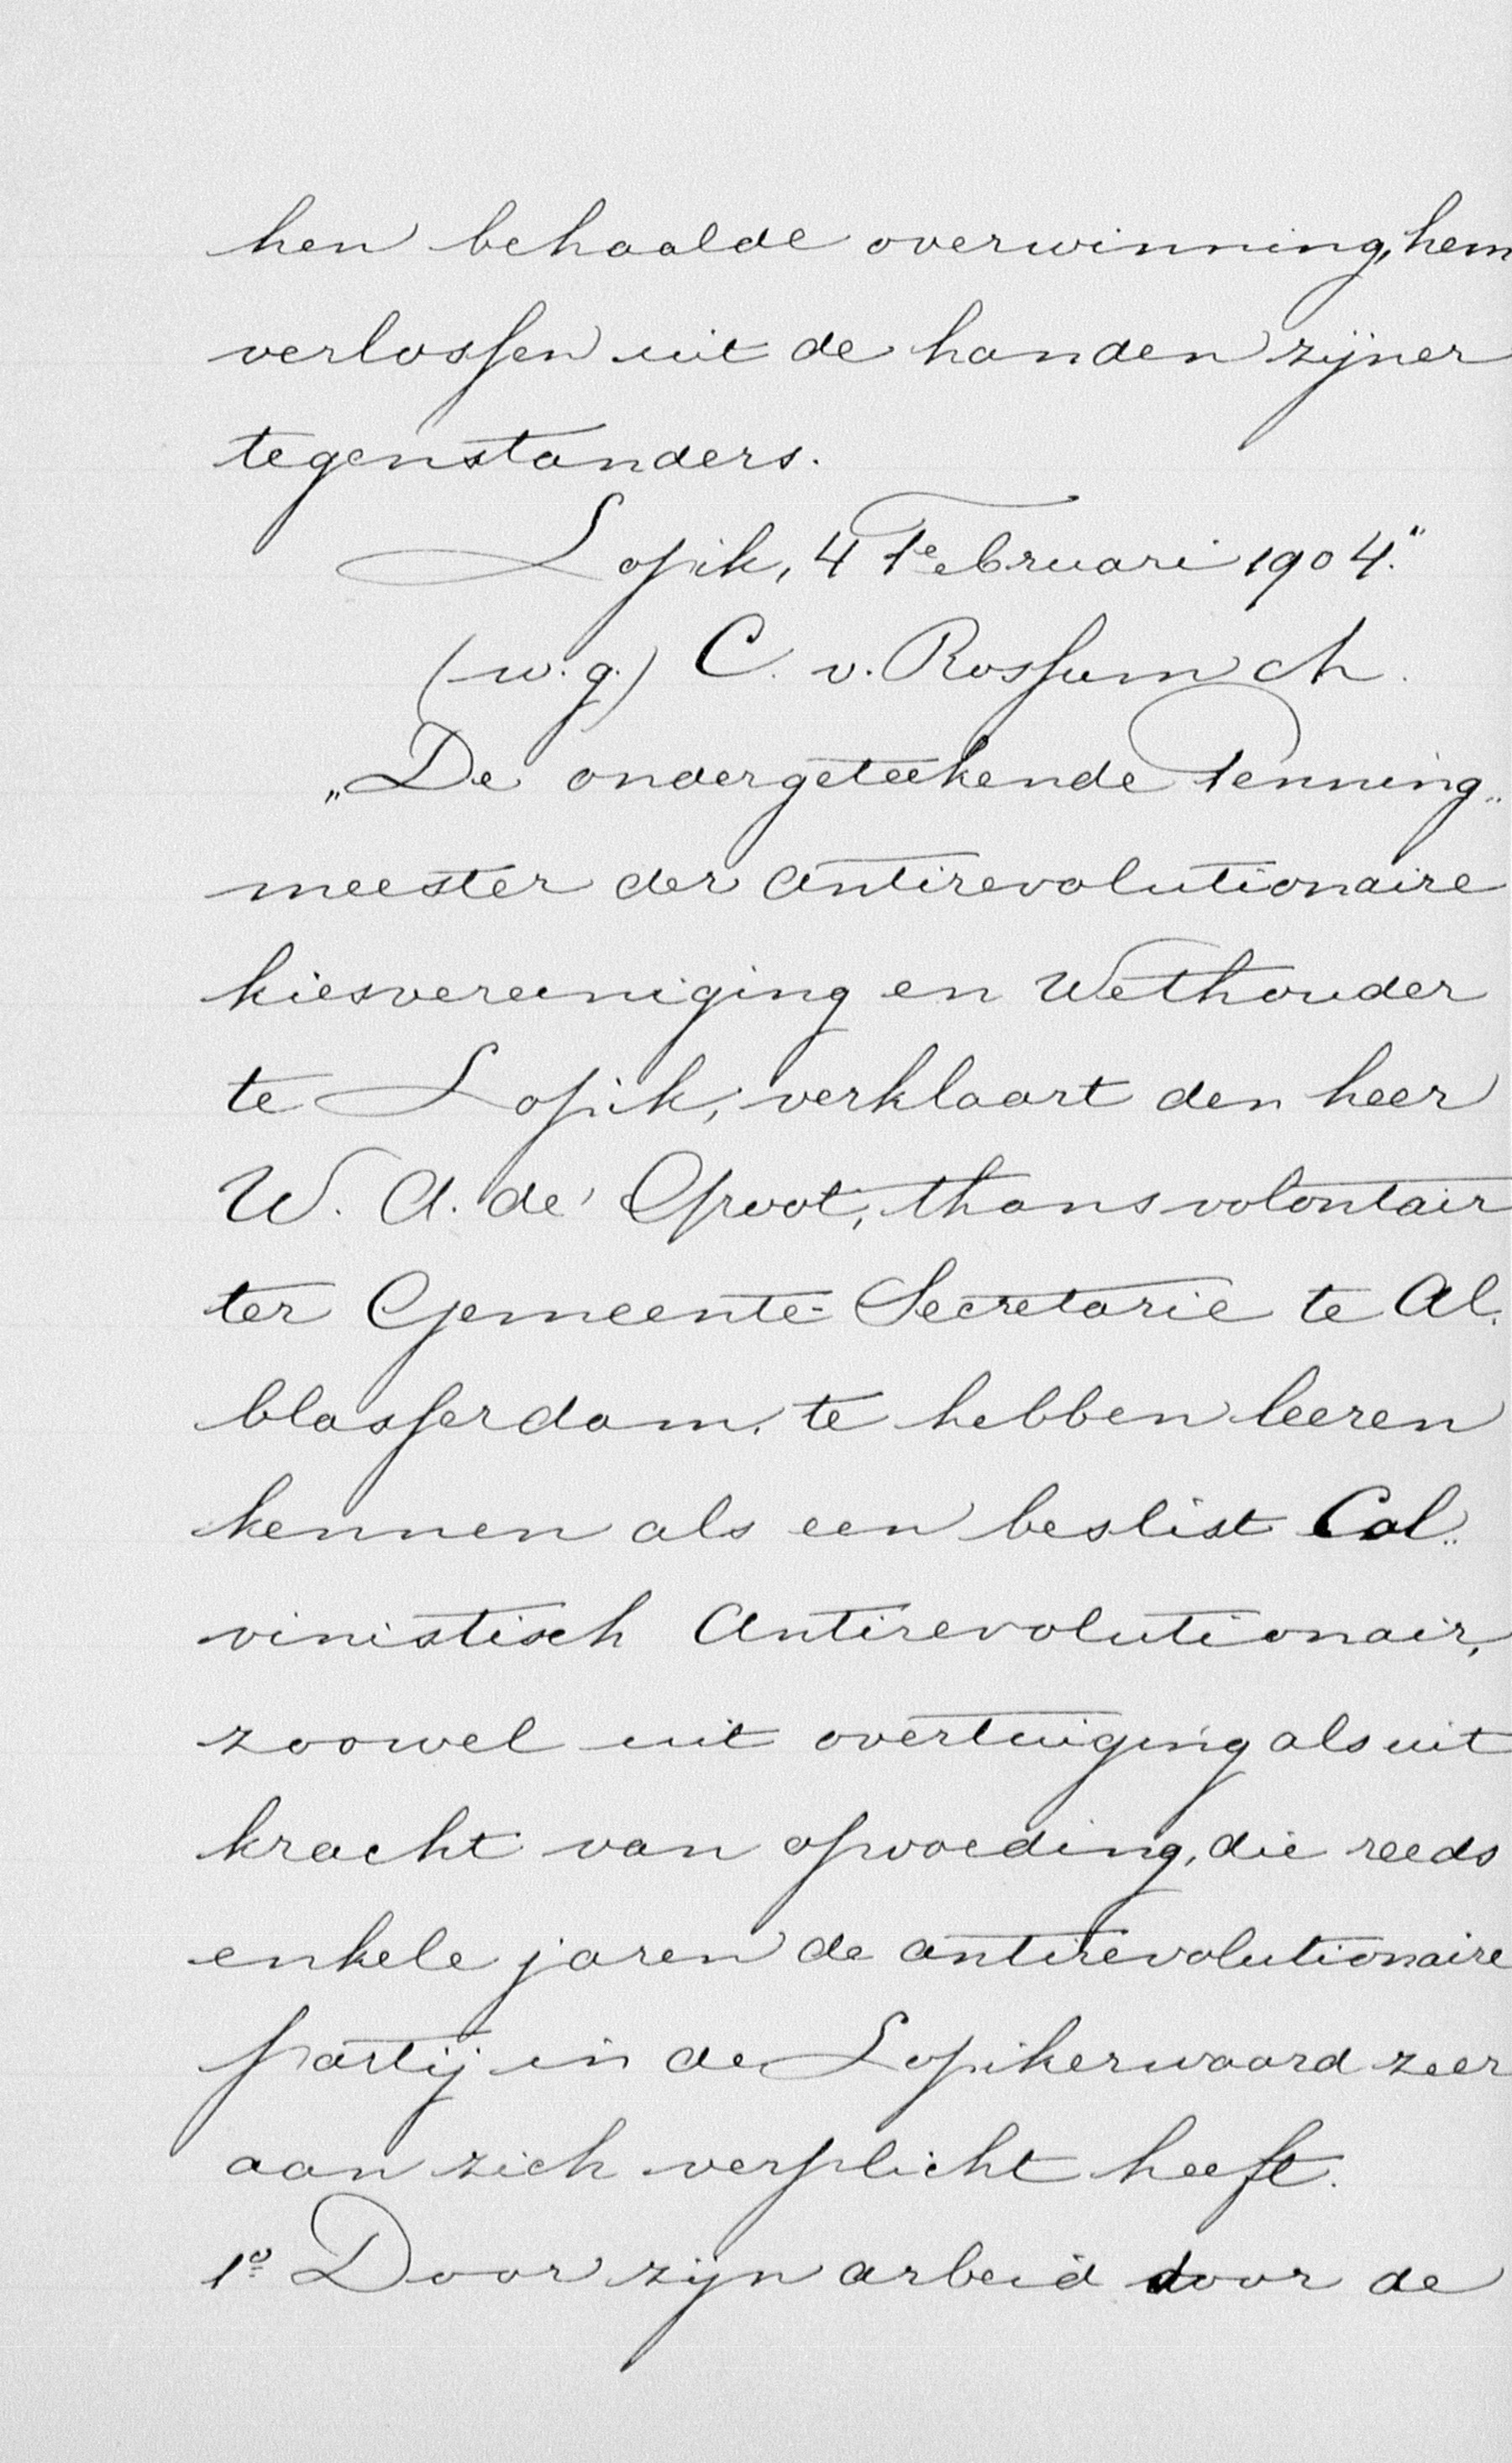 hen behaalde overwinning, hem
verlossen uit de handen zijner
tegenstanders.
Lopik, 4 Februari 1904."
(w.g.) C. v. Rossum ch.
„De ondergeteekende Penning„
meester der Antirevolutionaire
kiesvereeniging en Wethouder
te Lopik, verklaart den heer
W. A. de Groot, thans volontair
ter Gemeente-Secretarie te Al.
blasserdam, te hebben leeren
kennen als een beslist Cal„
vinistisch Antirevolutionair,
zoowel uit overtuiging als uit
kracht van opvoeding, die reeds
enkele jaren de antirevolutionaire
partij in de Lopikerwaard zeer
aan zich verplicht heeft.
1º Door zijn arbeid door de